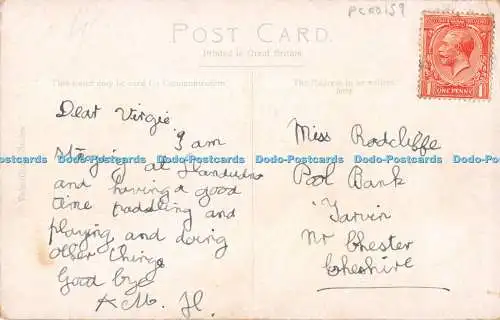 PCR0159
POST CARD.
Printed in Great Britain.
This space may be used for Communication.
The Address to be written
here
ONE PENNY
1 1
Dear Virgie
I am
staying at Llandudno
and having a good
time paddling and
playing and doing
other things
Good bye
K M. H.
Miss Radcliffe
Pool Bank
Tarvin
Nr Chester
Cheshire
Dodo-Postcards Dodo-Postcards Dodo-Postcards Dodo-Postcards Dodo-Postcards